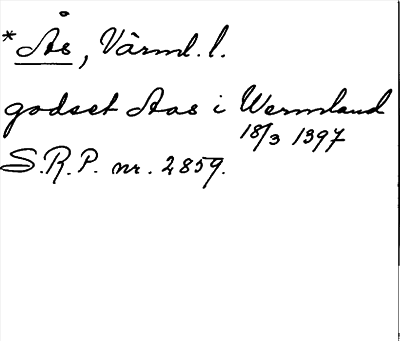 *Ås, Värml. l.
godset Aas i Wermland
18/3 1397
S.R.P. nr. 2859.